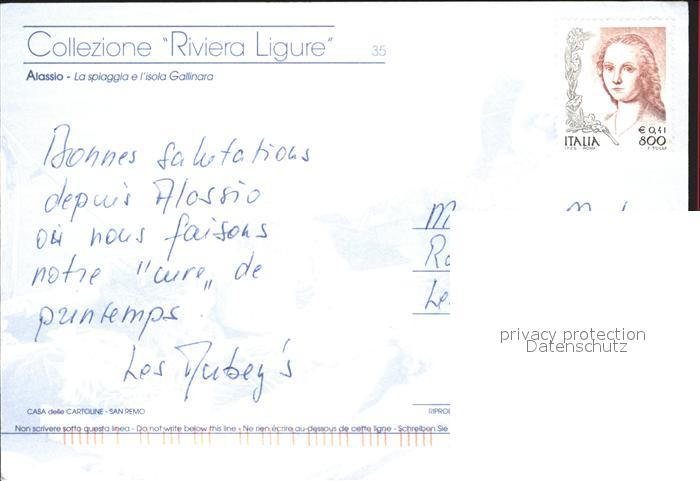 Collezione "Riviera Ligure"
35
Alassio - La spiaggia e l'isola Gallinara
€ 0,41
ITALIA 800
Bonnes salutations
depuis Alassio
où nous faisons
notre "cure" de
printemps.
Les Aubey's
M
Ro
Le
privacy protection
Datenschutz
CASA delle CARTOLINE - SAN REMO
RIPROD
Non scrivere sotto questa linea - Do not write below this line - Ne rien écrire au-dessous de cette ligne - Schreiben Sie